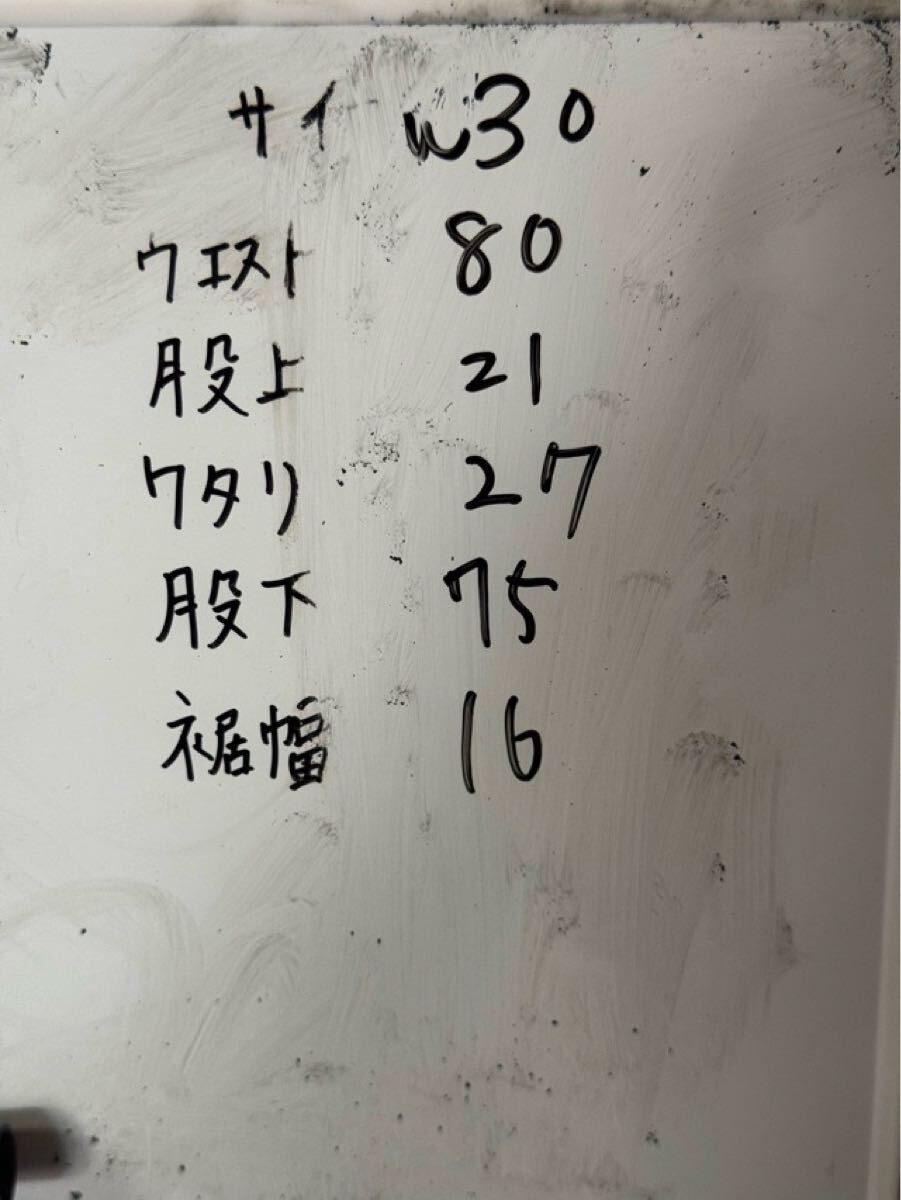 サイ W30
ウエスト 80
股上 21
ワタリ 27
股下 75
裾幅 16